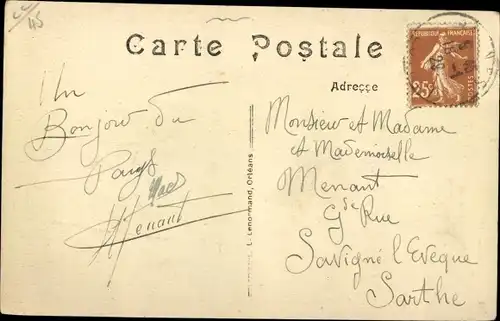 45
Carte Postale
Adresse
RÉPUBLIQUE FRANÇAISE
25c
POSTES
Un
Bonjour du
Pays
Menant
L. Lenormand, Orléans
Monsieur et Madame
et Mademoiselle
Menant
Gde Rue
Savigné l'Evèque
Sarthe